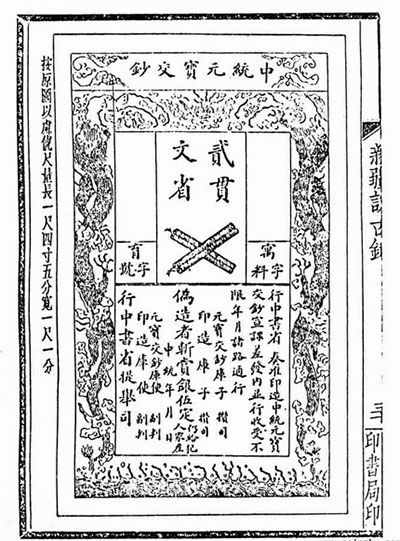 新疆訪古錄
印書局印
中統元寶交鈔
貳貫
文省
字料
育字號
行中書省 奏准印造中統元寶
交鈔宣課差發內並行收受不
限年月諸路通行
元寶交鈔庫子 攢司
印造庫子 攢司
偽造者斬賞銀伍定仍給犯人家產
中統 年 月 日
元寶交鈔庫使 副判
印造庫使 副判
行中書省提舉司
按原圖以慮俿尺量長一尺四寸五分寬一尺一分